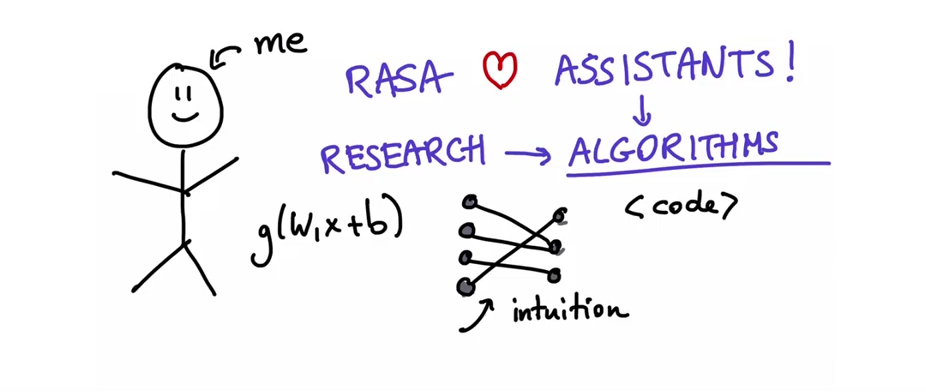 me
RASA ♡ ASSISTANTS!
↓
RESEARCH → ALGORITHMS
g(W₁x+b)
<code>
intuition